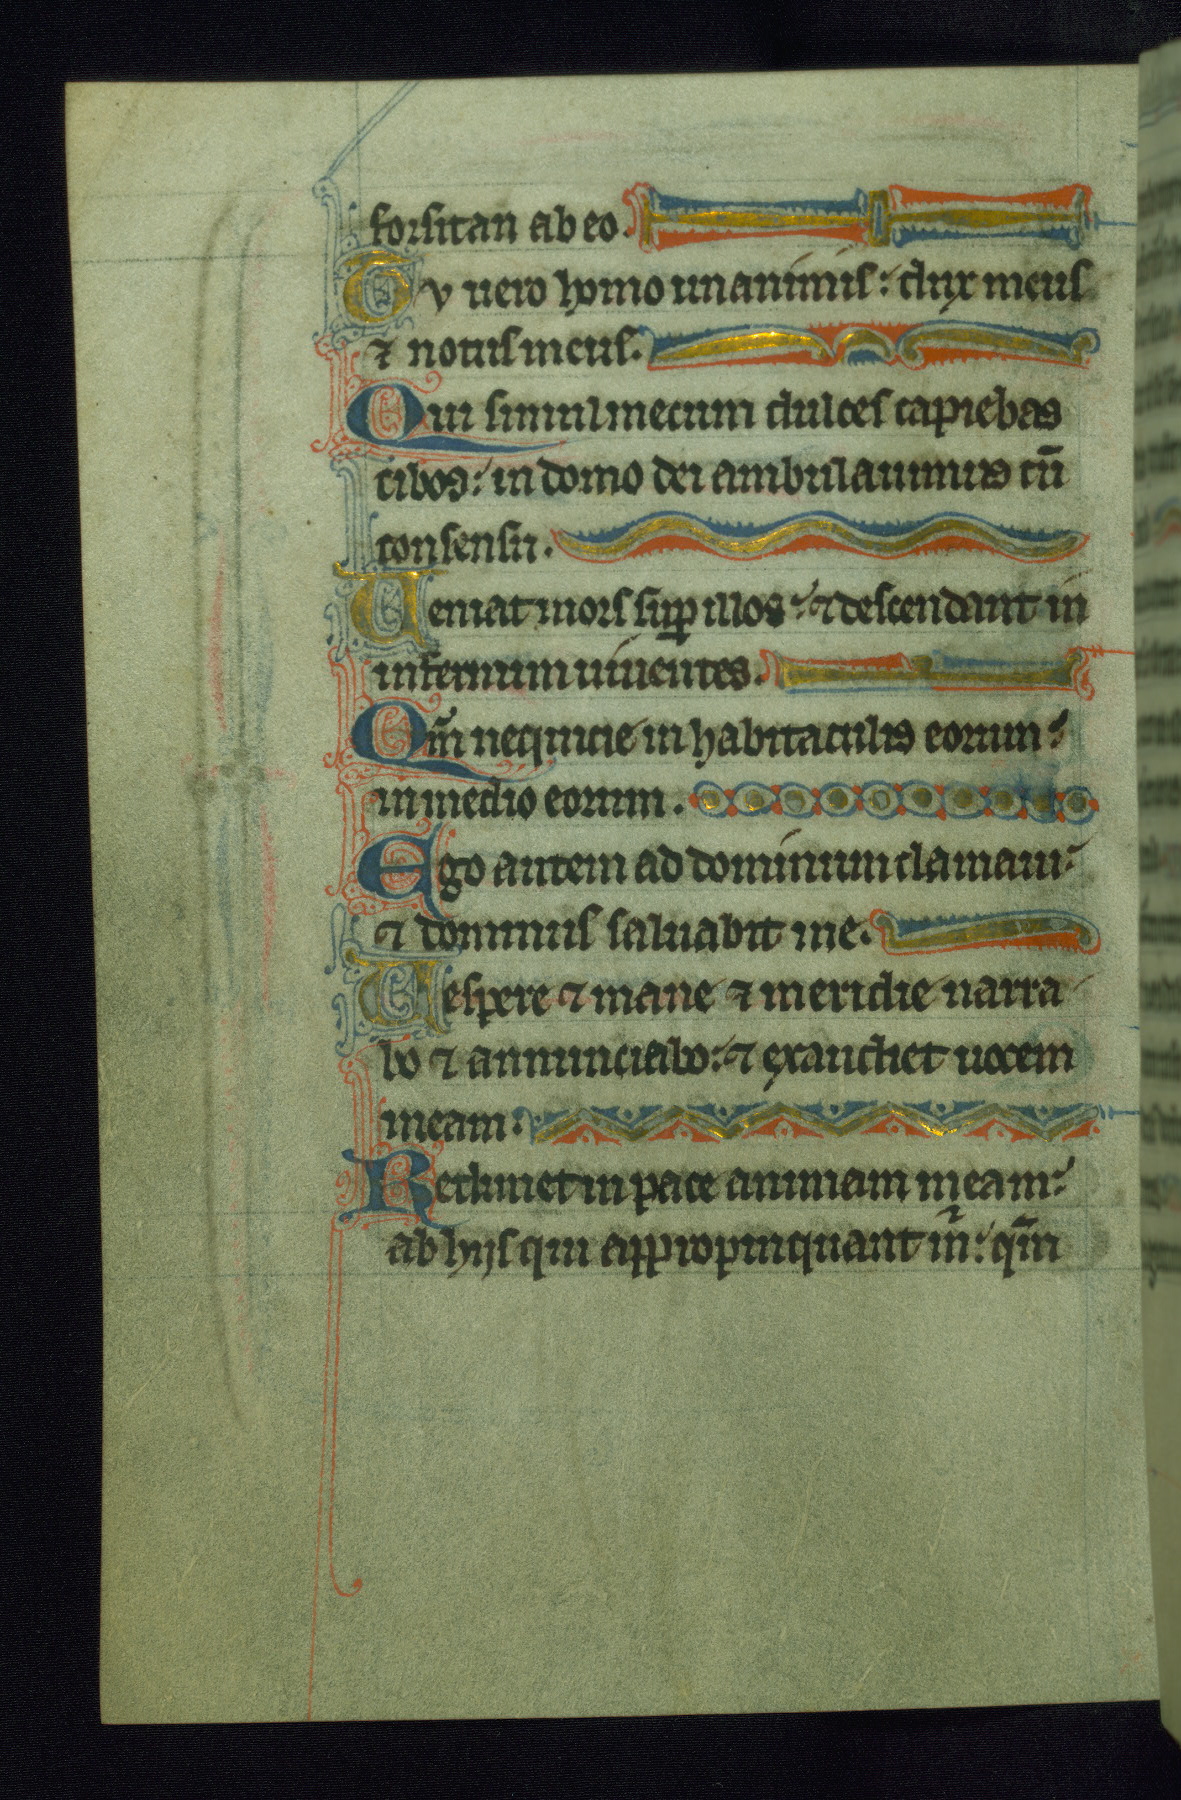 forsitan ab eo.
Tv uero homo unanimis: dux meus
⁊ notus meus.
Qui simul mecum dulces capiebas
cibos: in domo dei ambulauimus cū
consensu.
Ueniat mors sup̱ illos: ⁊ descendant in
infernum uiuentes.
Qm̄ nequicie in habitaculis eorum:
in medio eorum.
Ego autem ad dominum clamaui:
⁊ dominus saluabit me.
Uespere ⁊ mane ⁊ meridie narra
bo ⁊ annunciabo: ⁊ exaudiet uocem
meam:
Redimet in pace animam meam:
ab hijs qui appropinquant m̄: qm̄